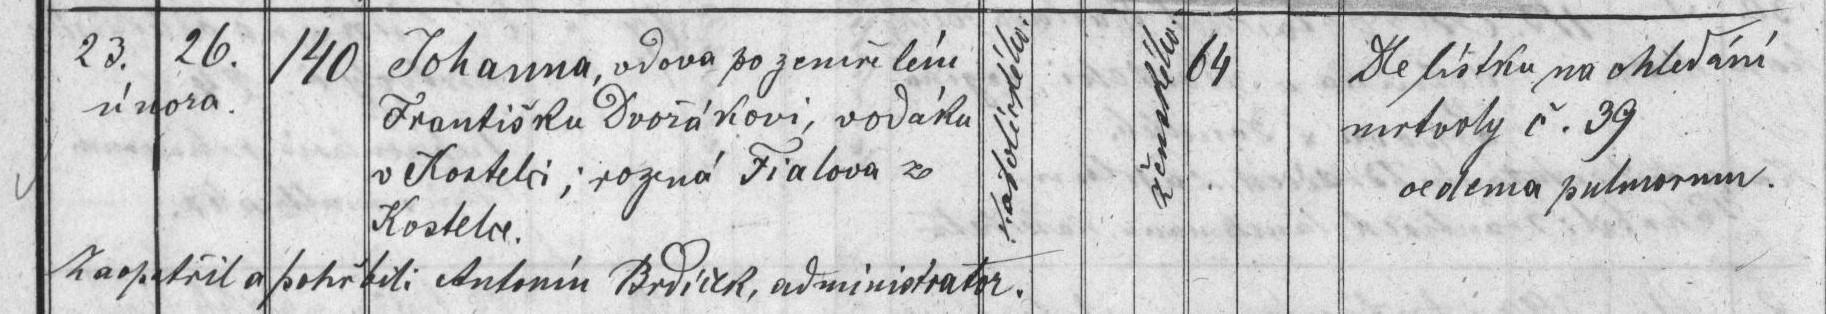 23. 26. 140 Johanna, vdova po zemřelém katolické ženské 64 Dle lístku na ohledání
února. Františku Dvořákovi, vodáku mrtvoly č. 39
v Kostelci; rozená Fialova z oedema pulmorum.
Kostelce.
Zaopatřil a pohřbil: Antonín Brdíček, administrator.